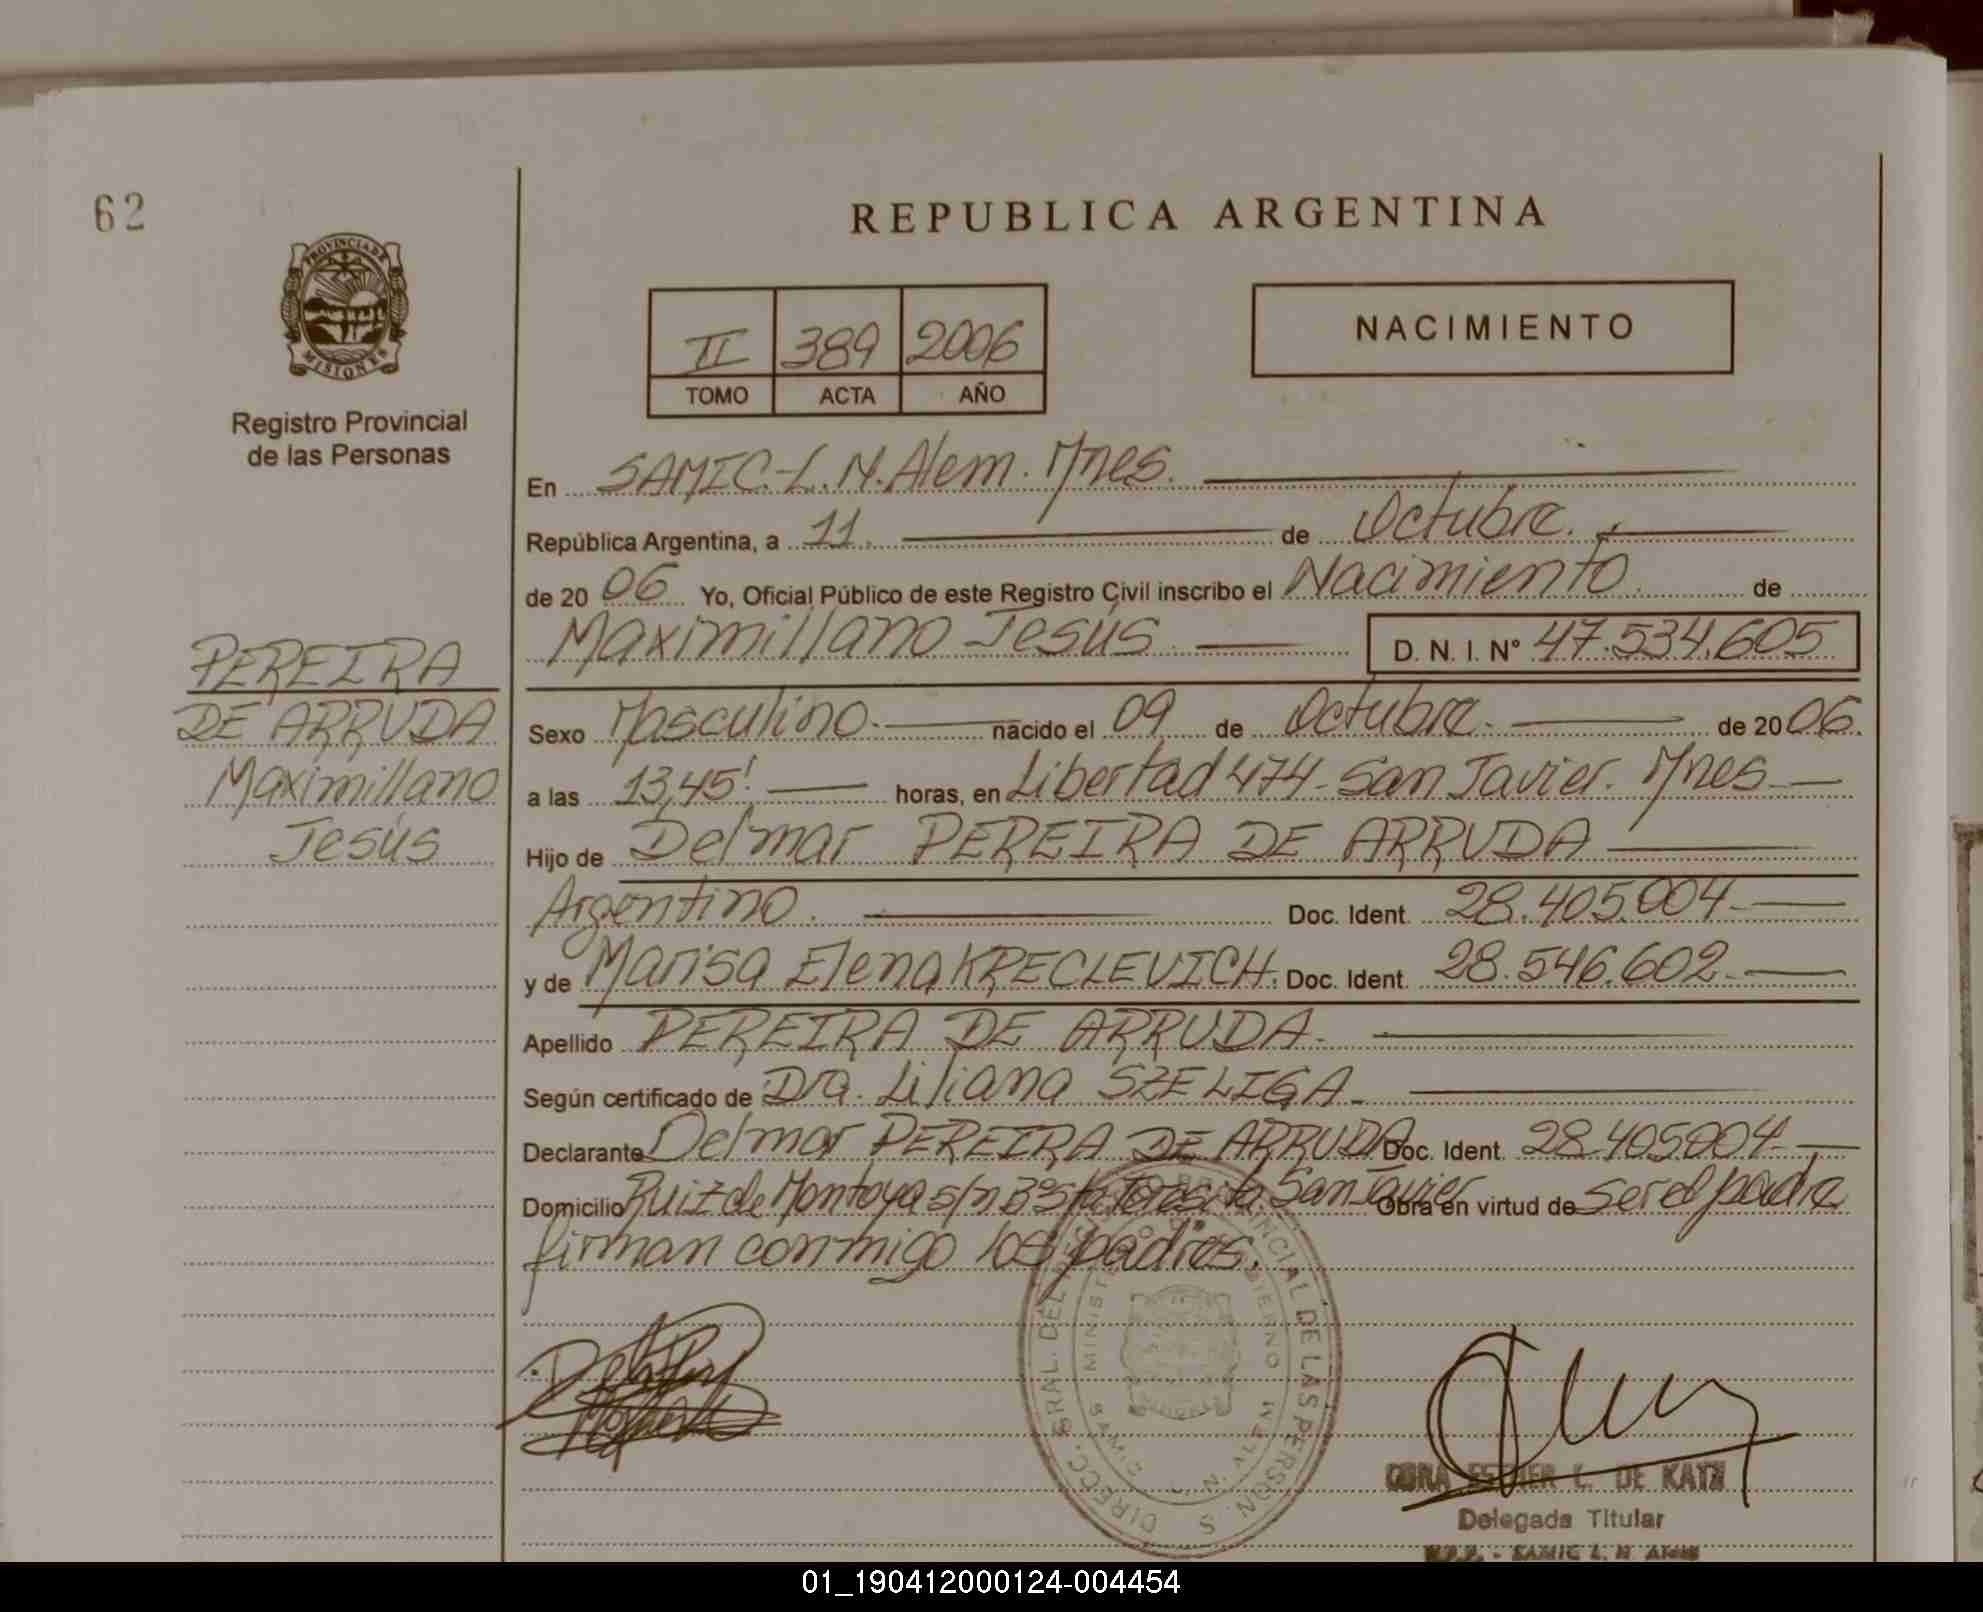 62
REPUBLICA ARGENTINA
PROVINCIA DE
MISIONES
Registro Provincial
de las Personas
II 389 2006
TOMO ACTA AÑO
NACIMIENTO
En SAMIC-L.N.Alem. Mnes.
República Argentina, a 11. de Octubre.
de 2006 Yo, Oficial Público de este Registro Civil inscribo el Nacimiento. de
Maximiliano Jesús D. N. I. Nº 47.534.605
PEREIRA
DE ARRUDA
Maximiliano
Jesús
Sexo Masculino. nacido el 09 de Octubre. de 2006.
a las 13,45' horas, en Libertad 474- San Javier. Mnes
Hijo de Delmar PEREIRA DE ARRUDA
Argentino. Doc. Ident. 28.405.004
y de Marisa Elena KRECLEVICH. Doc. Ident. 28.546.602
Apellido PEREIRA DE ARRUDA.
Según certificado de Dra. Liliana SZELIGA.
Declarante Delmar PEREIRA DE ARRUDA Doc. Ident. 28.405004
Domicilio Ruiz de Montoya s/n Bº Sta Teresita. San Javier Obra en virtud de ser el padre
firman conmigo los padres.
MINISTERIO DE GOBIERNO
SAMIC L. N. ALEM
ESTHER L. DE KATZ
Delegada Titular
R.P.P. - SAMIC L. N. Alem
01_190412000124-004454